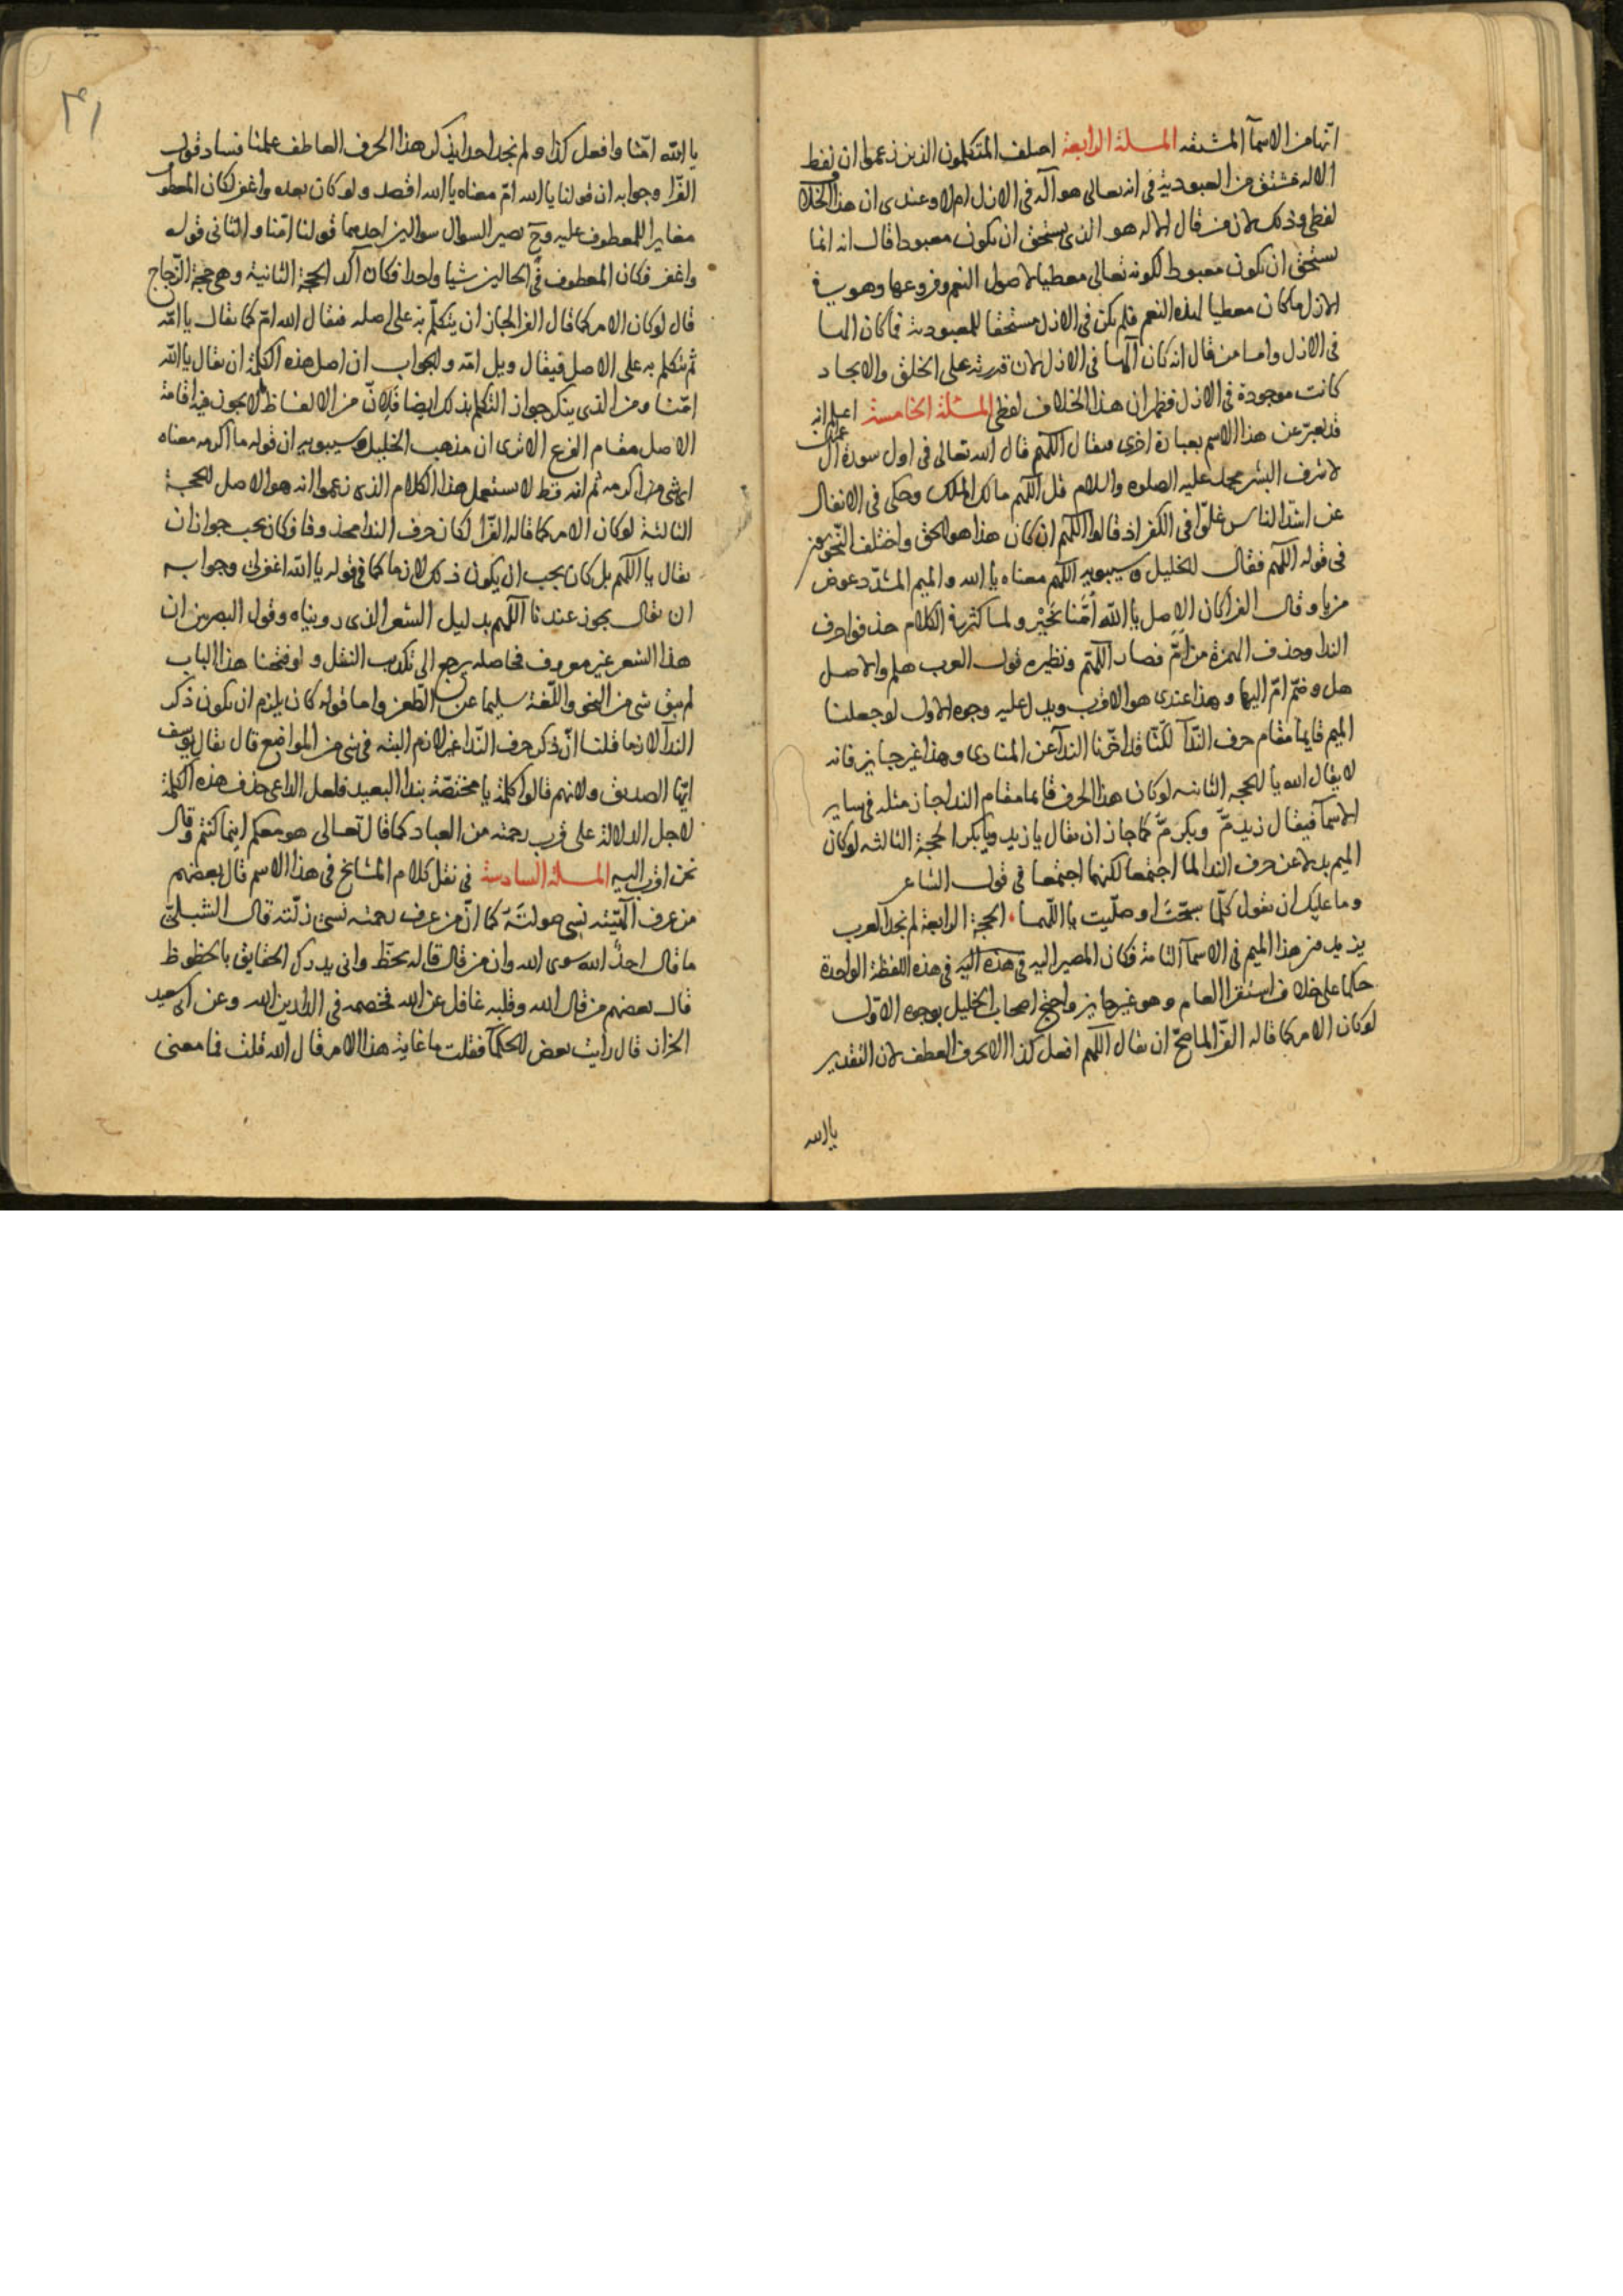 انها من الاسمآ المشتقه المسلة الرابعة اختلف المتكلمون الذين زعموا ان لفظ
الاله مشتق من العبودية فى انه تعالى هو آله فى الازل ام لا وعندى ان هذا الخلاف
لفظى وذلك لان من قال الاله هو الذى يستحق ان يكون معبودا قال انه انما
يستحق ان يكون معبودا لكونه تعالى معطيا لاصول النعم وفروعها وهو فى
الازل ما كان معطيا لهذه النعم فلم يكن فى الازل مستحقا للمعبودية فما كان الها
فى الازل واما من قال انه كان آلها فى الازل لان قدرته على الخلق والايجاد
كانت موجودة فى الازل فظهر ان هذا الخلاف لفظى المسئلة الخامسة اعلم انه
قد يعبر عن هذا الاسم بعبارة اخرى فيقال اللهم قال الله تعالى فى اول سورة آل عمران
لاشرف البشر محمد عليه الصلوه والسلام قل اللهم مالك الملك وحكى فى الانفال
عن اشد الناس غلوّا فى الكفر اذ قالوا اللهم ان كان هذا هو الحق واختلف النحويون
فى قوله اللهم فقال الخليل وسيبويه اللهم معناه يا الله والميم المشدد عوض
من يا وقال الفرا كان الاصل يا الله أمّنا بخَيْر ولما كثر فى الكلام حذفوا حرف
الندا وحذف الهمزة من أمّ فصار اللهّم ونظيره قول العرب هلم والاصل
هل وضمّ امّ اليها وهذا عندى هو الاقرب ويدل عليه وجوه الاول لو جعلنا
الميم قايما مقام حرف النّدآ لكنّا قد اخّرنا الندآ عن المنادى وهذا غير جايز فانه
لا يقال الله يا الحجه الثانيه لو كان هذا الحرف قايما مقام الندا جاز مثله فى ساير
الاسمآ فيقال زيد مّ وبكر مّ كما جاز ان يقال يا زيد ويا بكر الحجة الثالثه لو كان
الميم بدلا عن حرف الندا لما اجتمعا لكنهما اجتمعا فى قول الشاعر
وما عليك ان تقول كلّما سبّحت او صلّيت يا اللّهما الحجة الرابعة لم نجد العرب
يزيد من هذا الميم فى الاسمآ التامة فكان المصير اليه فى هذه اليه فى هذه اللفظة الواحدة
حكما على خلاف استقرا العام وهو غير جايز واحتج اصحاب الخليل بوجوه الاول
لو كان الامر كما قاله الفرّا لما صحّ ان يقال اللهم افعل كذا الا بحرف العطف لان التقدير
يا الله
٤١
يا الله امّنا وافعل كذا ولم نجد احدا يذكر هذا الحرف العاطف علمنا فساد قول
الفّرا وجوابه ان قولنا يا الله امّ معناه يا الله اقصد ولو كان بعده واغفر لكان المعطوف
مغايرا للمعطوف عليه وحَ يصير السوال سوالين احدهما قولنا امّنا والثانى قوله
واغفر فكان المعطوف فى الحالين شيا واحدا فكان آكد الحجة الثانية وهى حجة الزّجاج
قال لو كان الامر كما قال الفرا لجاز ان يتكلّم به على اصله فيقال الله امّ كما يقال يا امّه
ثم يتكلم به على الاصل فيقال ويل امّه والجواب ان اصل هذه الكلمة ان يقال يا الله
امّنا ومن الذى ينكر جواز التكلم بذلك ايضا فلانّ من الالفاظ ما لا يجوز فيه اقامة
الاصل مقام الفرع الا ترى ان مذهب الخليل وسيبويه ان قوله ما اكرمه معناه
اى شى من اكرمه ثم انه قط لا يستعمل هذا الكلام الذى زعموا انه هو الاصل الحجة
الثالثة لو كان الامر كما قاله الفرّا لكان حرف الندا محذوفا وكان يجب جواز ان
يقال يا اللهم بل كان يجب ان يكون ذلك لازما كما فى قوله يا الله اغفر لى وجوابه
ان يقال يجوز عندنا اللهم بدليل الشعر الذى رويناه وقول البصريين ان
هذا الشعر غير معروف فحاصله يرجع الى تكذيب النقل ولو فتحنا هذا الباب
لم يبق شى من النحو واللّغة سليما عن الطّعن واما قوله كان يلزم ان يكون ذكر
الندآ لازما قلنا انّ ذكر حرف النّدا غير لازم البته فى شى من المواضع قال يقال يوسف
ايّها الصديق ولانهم قالوا كلمة يا مختصّة بندا البعيد فلعل الداعى حذف هذه الكلمة
لاجل الدلالة على قرب رحمته من العباد كما قال تعالى هو معكم اينما كنتم وقال
نحن اقرب اليه المسلة السادسة فى نقل كلام المشايخ فى هذا الاسم قال بعضهم
من عرف آلهيّته نسى صولته كما انّ من عرف رحمته نسى زلّته قال الشبلىّ
ما قال احدٌ الله سوى الله وان من قال قاله بحظّ وانى يدرك الحقايق بالحظوظ
قال بعضهم من قال الله وقلبه غافل عن الله فخصمه فى الدارين الله وعن ابى سعيد
الخراز قال رايت بعض الحكمآ فقلت ما غاية هذا الامر قال الله قلت فما معنى